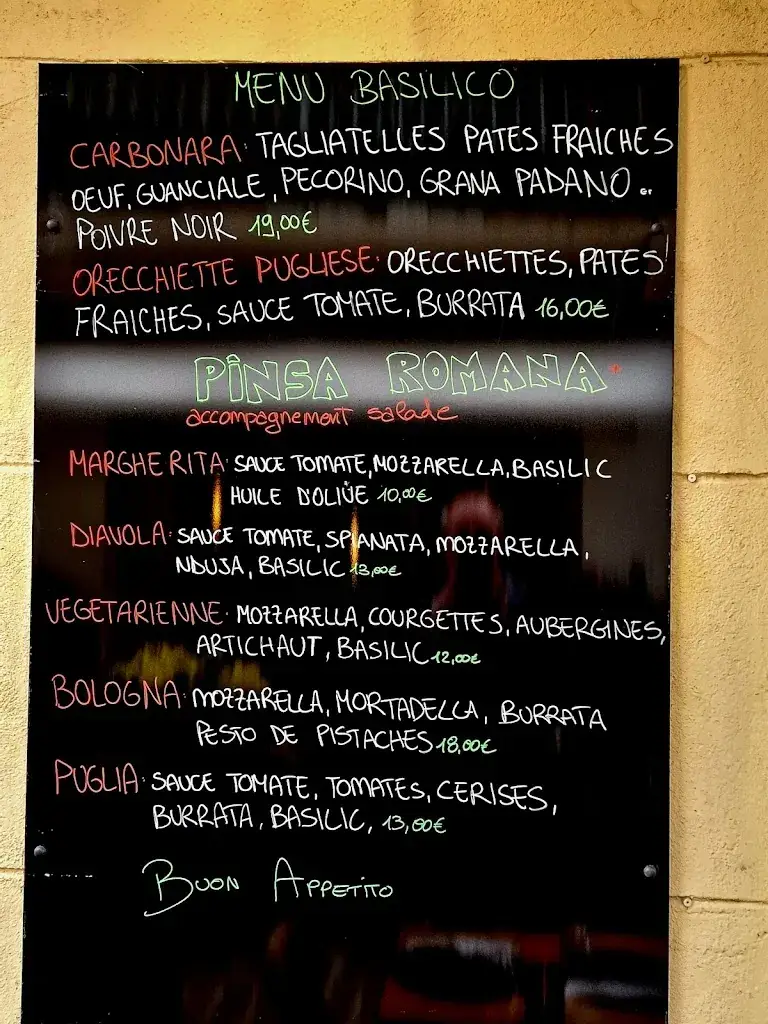 MENU BASILICO
CARBONARA: TAGLIATELLES PATES FRAICHES
OEUF, GUANCIALE, PECORINO, GRANA PADANO et
POIVRE NOIR 19,00€
ORECCHIETTE PUGLIESE: ORECCHIETTES, PATES
FRAICHES, SAUCE TOMATE, BURRATA 16,00€
PINSA ROMANA
accompagnement salade
MARGHERITA: SAUCE TOMATE, MOZZARELLA, BASILIC
HUILE D'OLIVE 10,00€
DIAVOLA: SAUCE TOMATE, SPIANATA, MOZZARELLA,
NDUJA, BASILIC 13,00€
VEGETARIENNE: MOZZARELLA, COURGETTES, AUBERGINES,
ARTICHAUT, BASILIC 12,00€
BOLOGNA: MOZZARELLA, MORTADELLA, BURRATA
PESTO DE PISTACHES 18,00€
PUGLIA: SAUCE TOMATE, TOMATES, CERISES,
BURRATA, BASILIC, 13,00€
BUON APPETITO